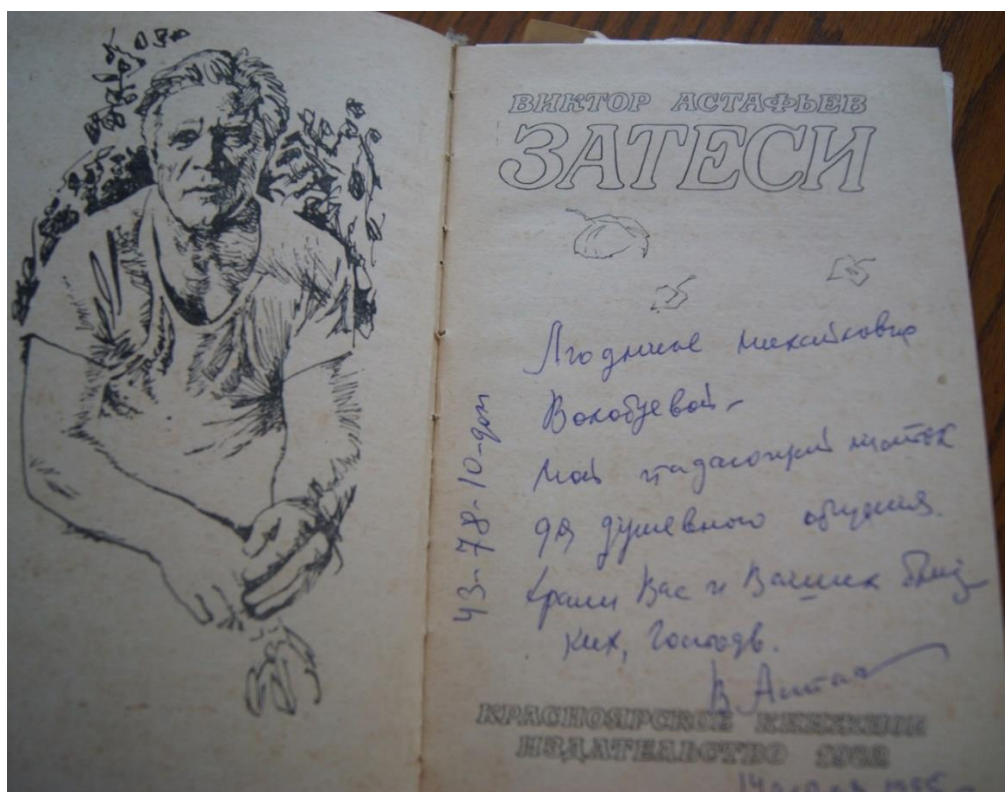 ВИКТОР АСТАФЬЕВ
ЗАТЕСИ
Людмиле Михайловне
Воробуевой -
Мой листок
для душевного общения.
Храни Вас и Ваших близ
ких, Господь.
В Астаф
43-78-10-дом
КРАСНОЯРСКОЕ КНИЖНОЕ
ИЗДАТЕЛЬСТВО 1982